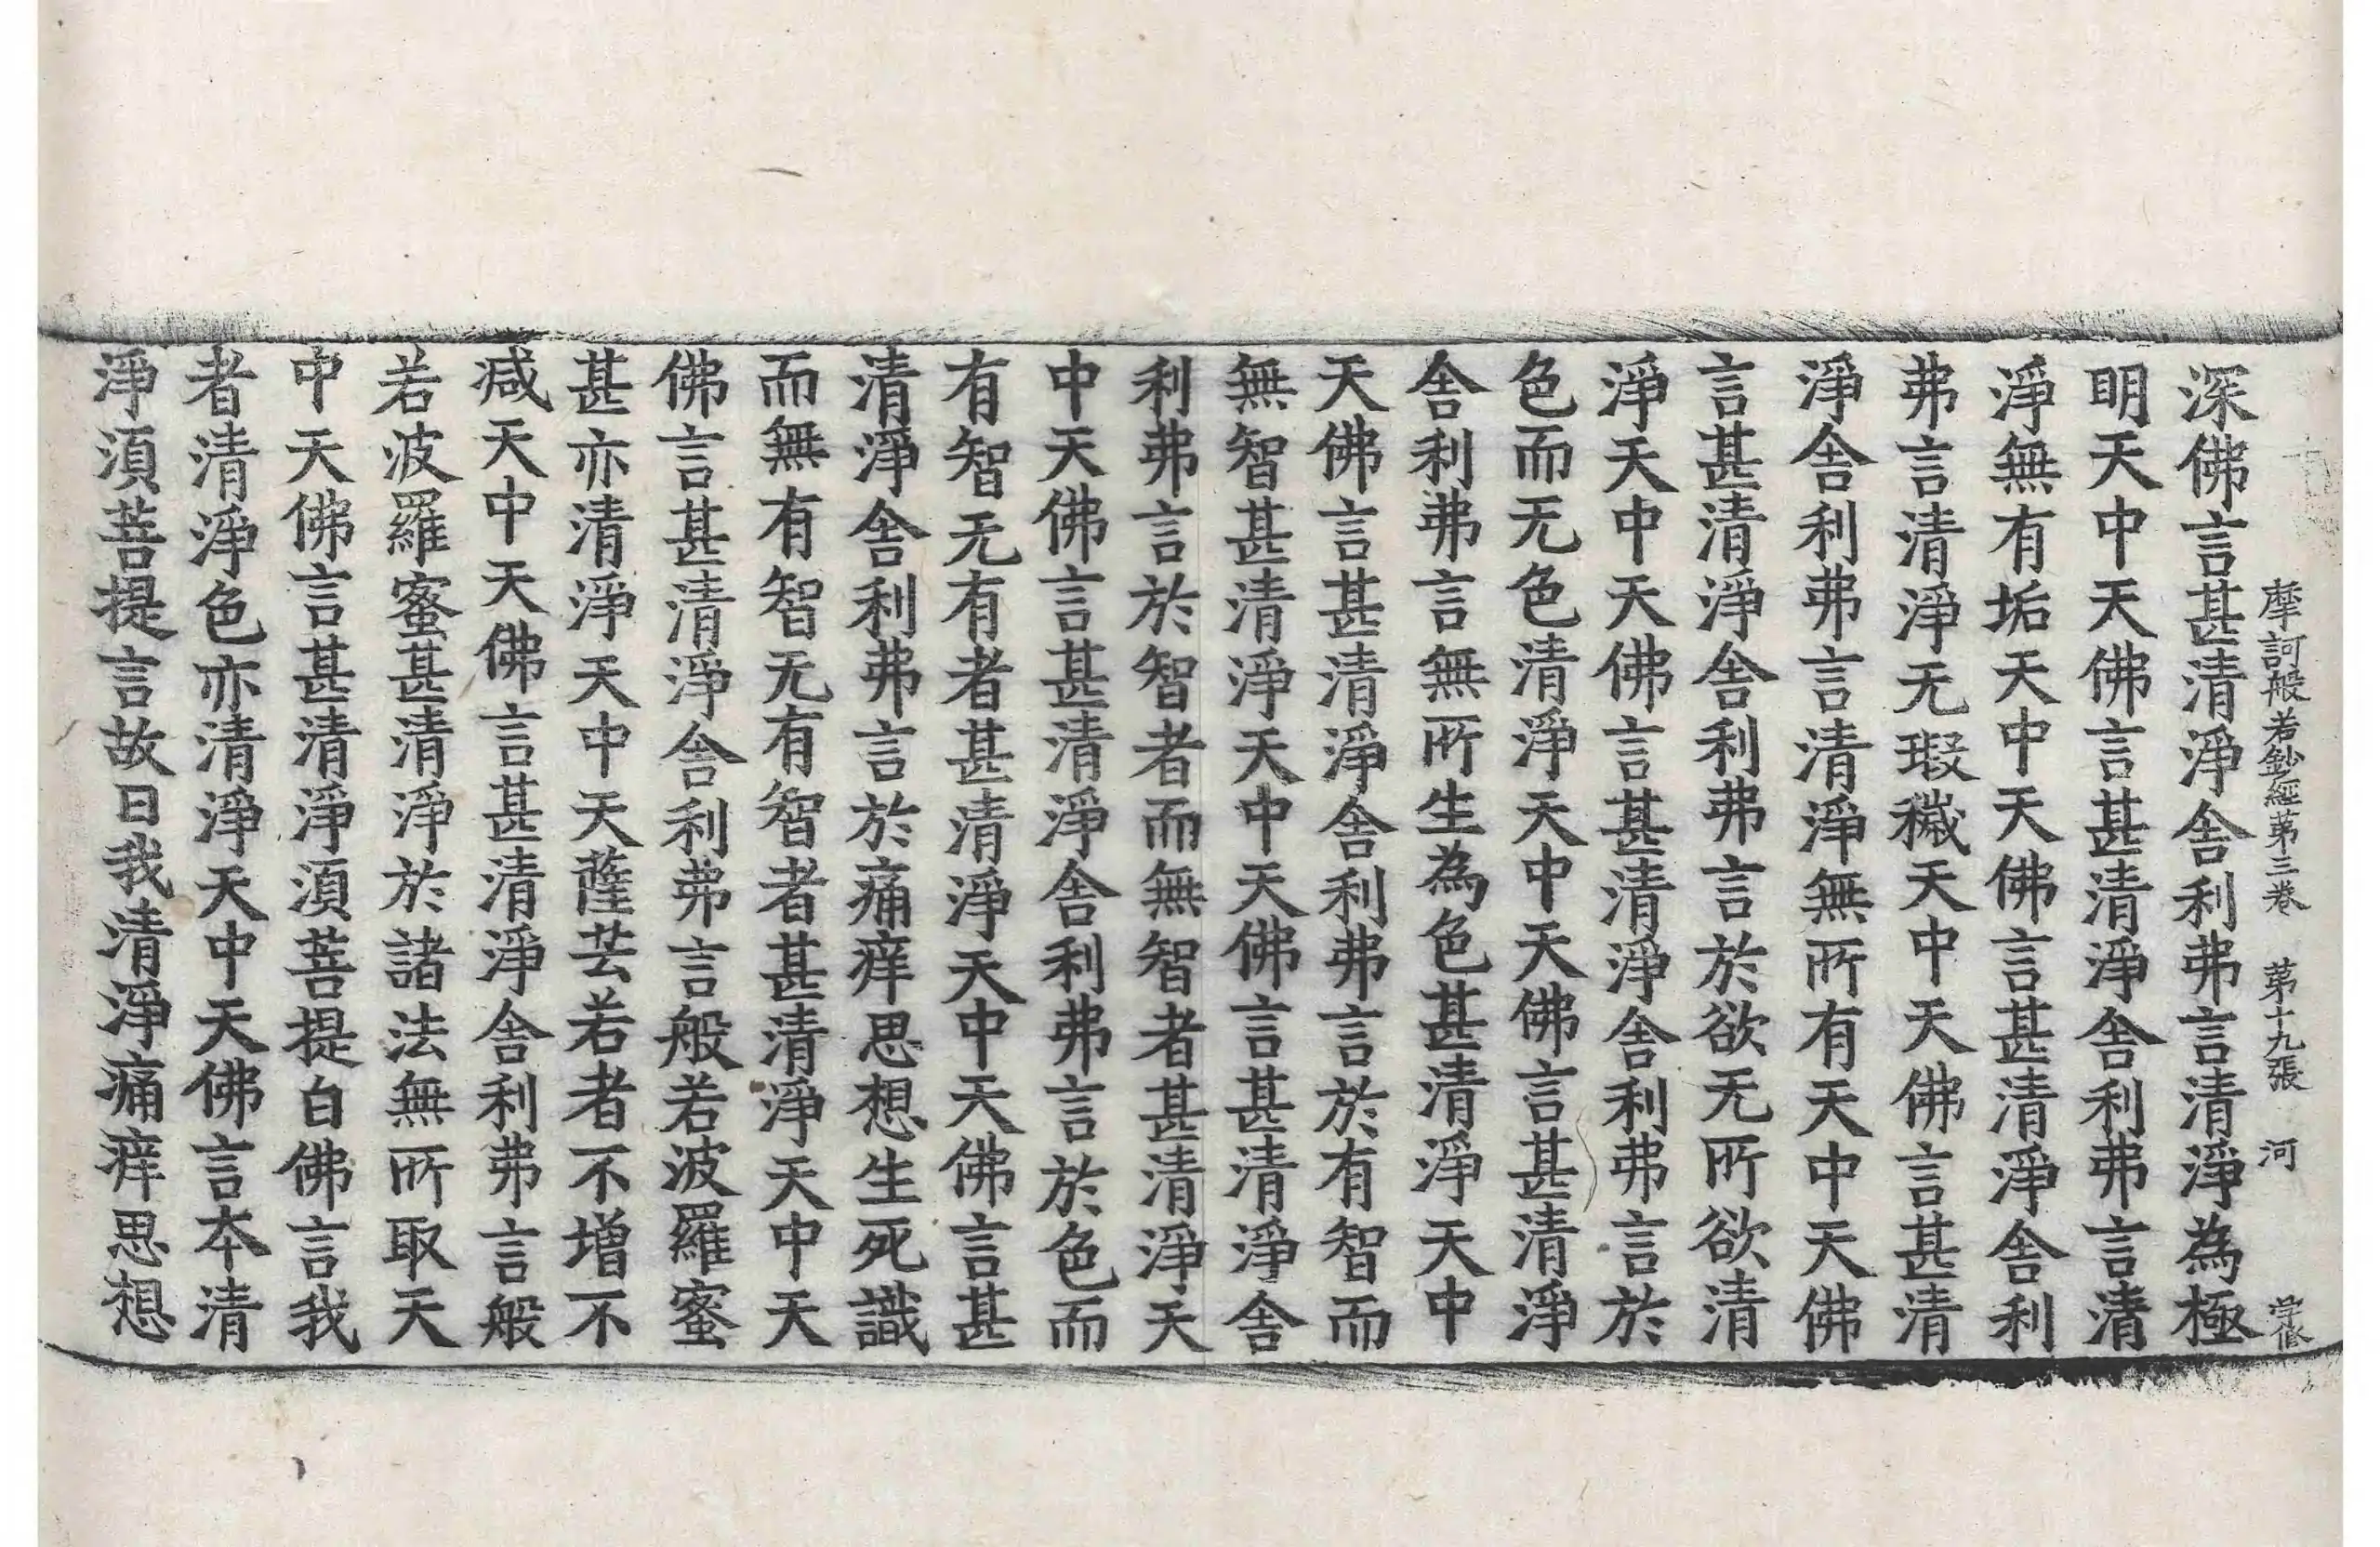 摩訶般若鈔經第三卷　第十九張　河　学修
深佛言甚清淨舍利弗言清淨為極
明天中天佛言甚清淨舍利弗言清
淨無有垢天中天佛言甚清淨舍利
弗言清淨无瑕穢天中天佛言甚清
淨舍利弗言清淨無所有天中天佛
言甚清淨舍利弗言於欲无所欲清
淨天中天佛言甚清淨舍利弗言於
色而无色清淨天中天佛言甚清淨
舍利弗言無所生為色甚清淨天中
天佛言甚清淨舍利弗言於有智而
無智甚清淨天中天佛言甚清淨舍
利弗言於智者而無智者甚清淨天
中天佛言甚清淨舍利弗言於色而
有智无有者甚清淨天中天佛言甚
清淨舍利弗言於痛痒思想生死識
而無有智无有智者甚清淨天中天
佛言甚清淨舍利弗言般若波羅蜜
甚亦清淨天中天薩芸若者不增不
减天中天佛言甚清淨舍利弗言般
若波羅蜜甚清淨於諸法無所取天
中天佛言甚清淨湏菩提白佛言我
者清淨色亦清淨天中天佛言本清
淨湏菩提言故曰我清淨痛痒思想